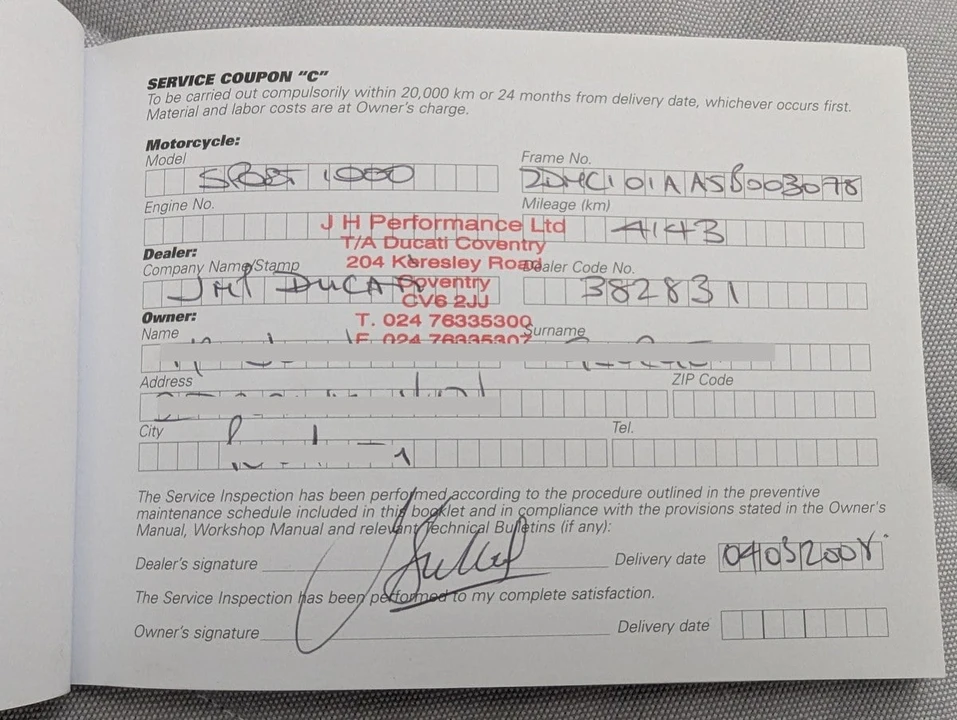 SERVICE COUPON "C"
To be carried out compulsorily within 20,000 km or 24 months from delivery date, whichever occurs first.
Material and labor costs are at Owner's charge.
Motorcycle:
Model
Frame No.
SPORT 1000
ZDMC101AASB003078
Engine No.
Mileage (km)
4143
J H Performance Ltd
T/A Ducati Coventry
204 Keresley Road
Coventry
CV6 2JJ
T. 024 76335300
F. 024 76335307
Dealer:
Company Name/Stamp
Dealer Code No.
JHP DUCATI
382831
Owner:
Name
Surname
Address
ZIP Code
City
Tel.
The Service Inspection has been performed according to the procedure outlined in the preventive
maintenance schedule included in this booklet and in compliance with the provisions stated in the Owner's
Manual, Workshop Manual and relevant Technical Bulletins (if any):
Dealer's signature
Delivery date
04032008
The Service Inspection has been performed to my complete satisfaction.
Owner's signature
Delivery date